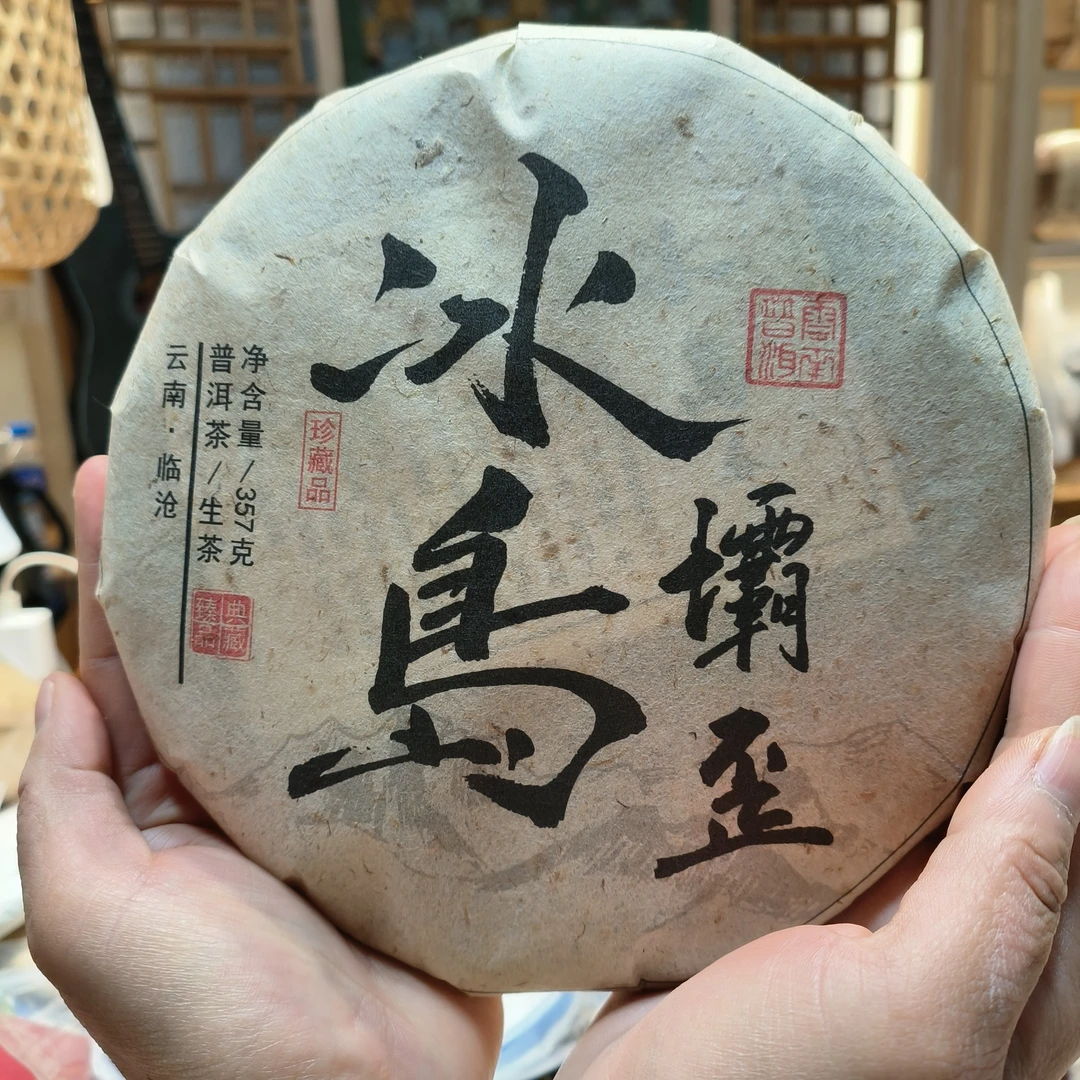 冰島
壩歪
雲南
普洱
珍藏品
净含量/357克
普洱茶/生茶
云南·临沧
典藏
臻品